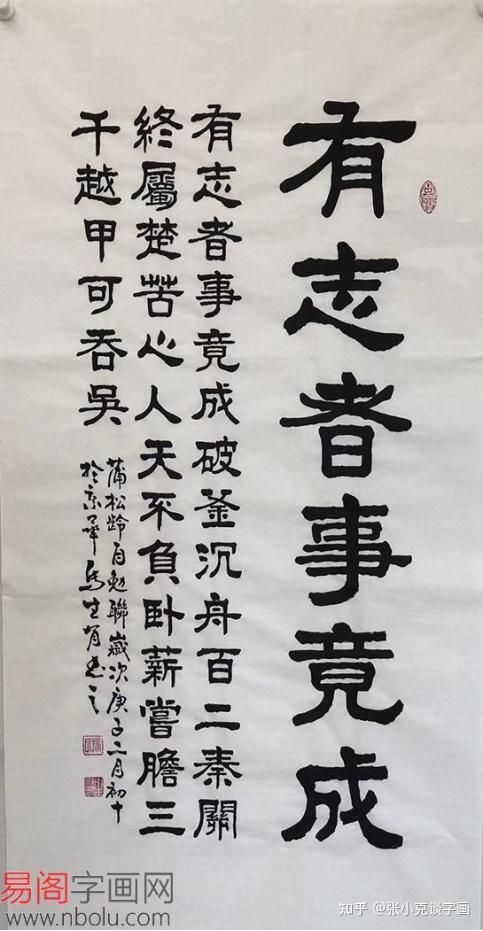 有志者事竟成
有志者事竟成破釜沉舟百二秦關
終屬楚苦心人天不負卧薪嘗膽三
千越甲可吞吳
蒲松齡自勉聯歲次庚子二月初十
於京華馬生書之
易阁字画网
www.nbolu.com
知乎 @张小克谈字画